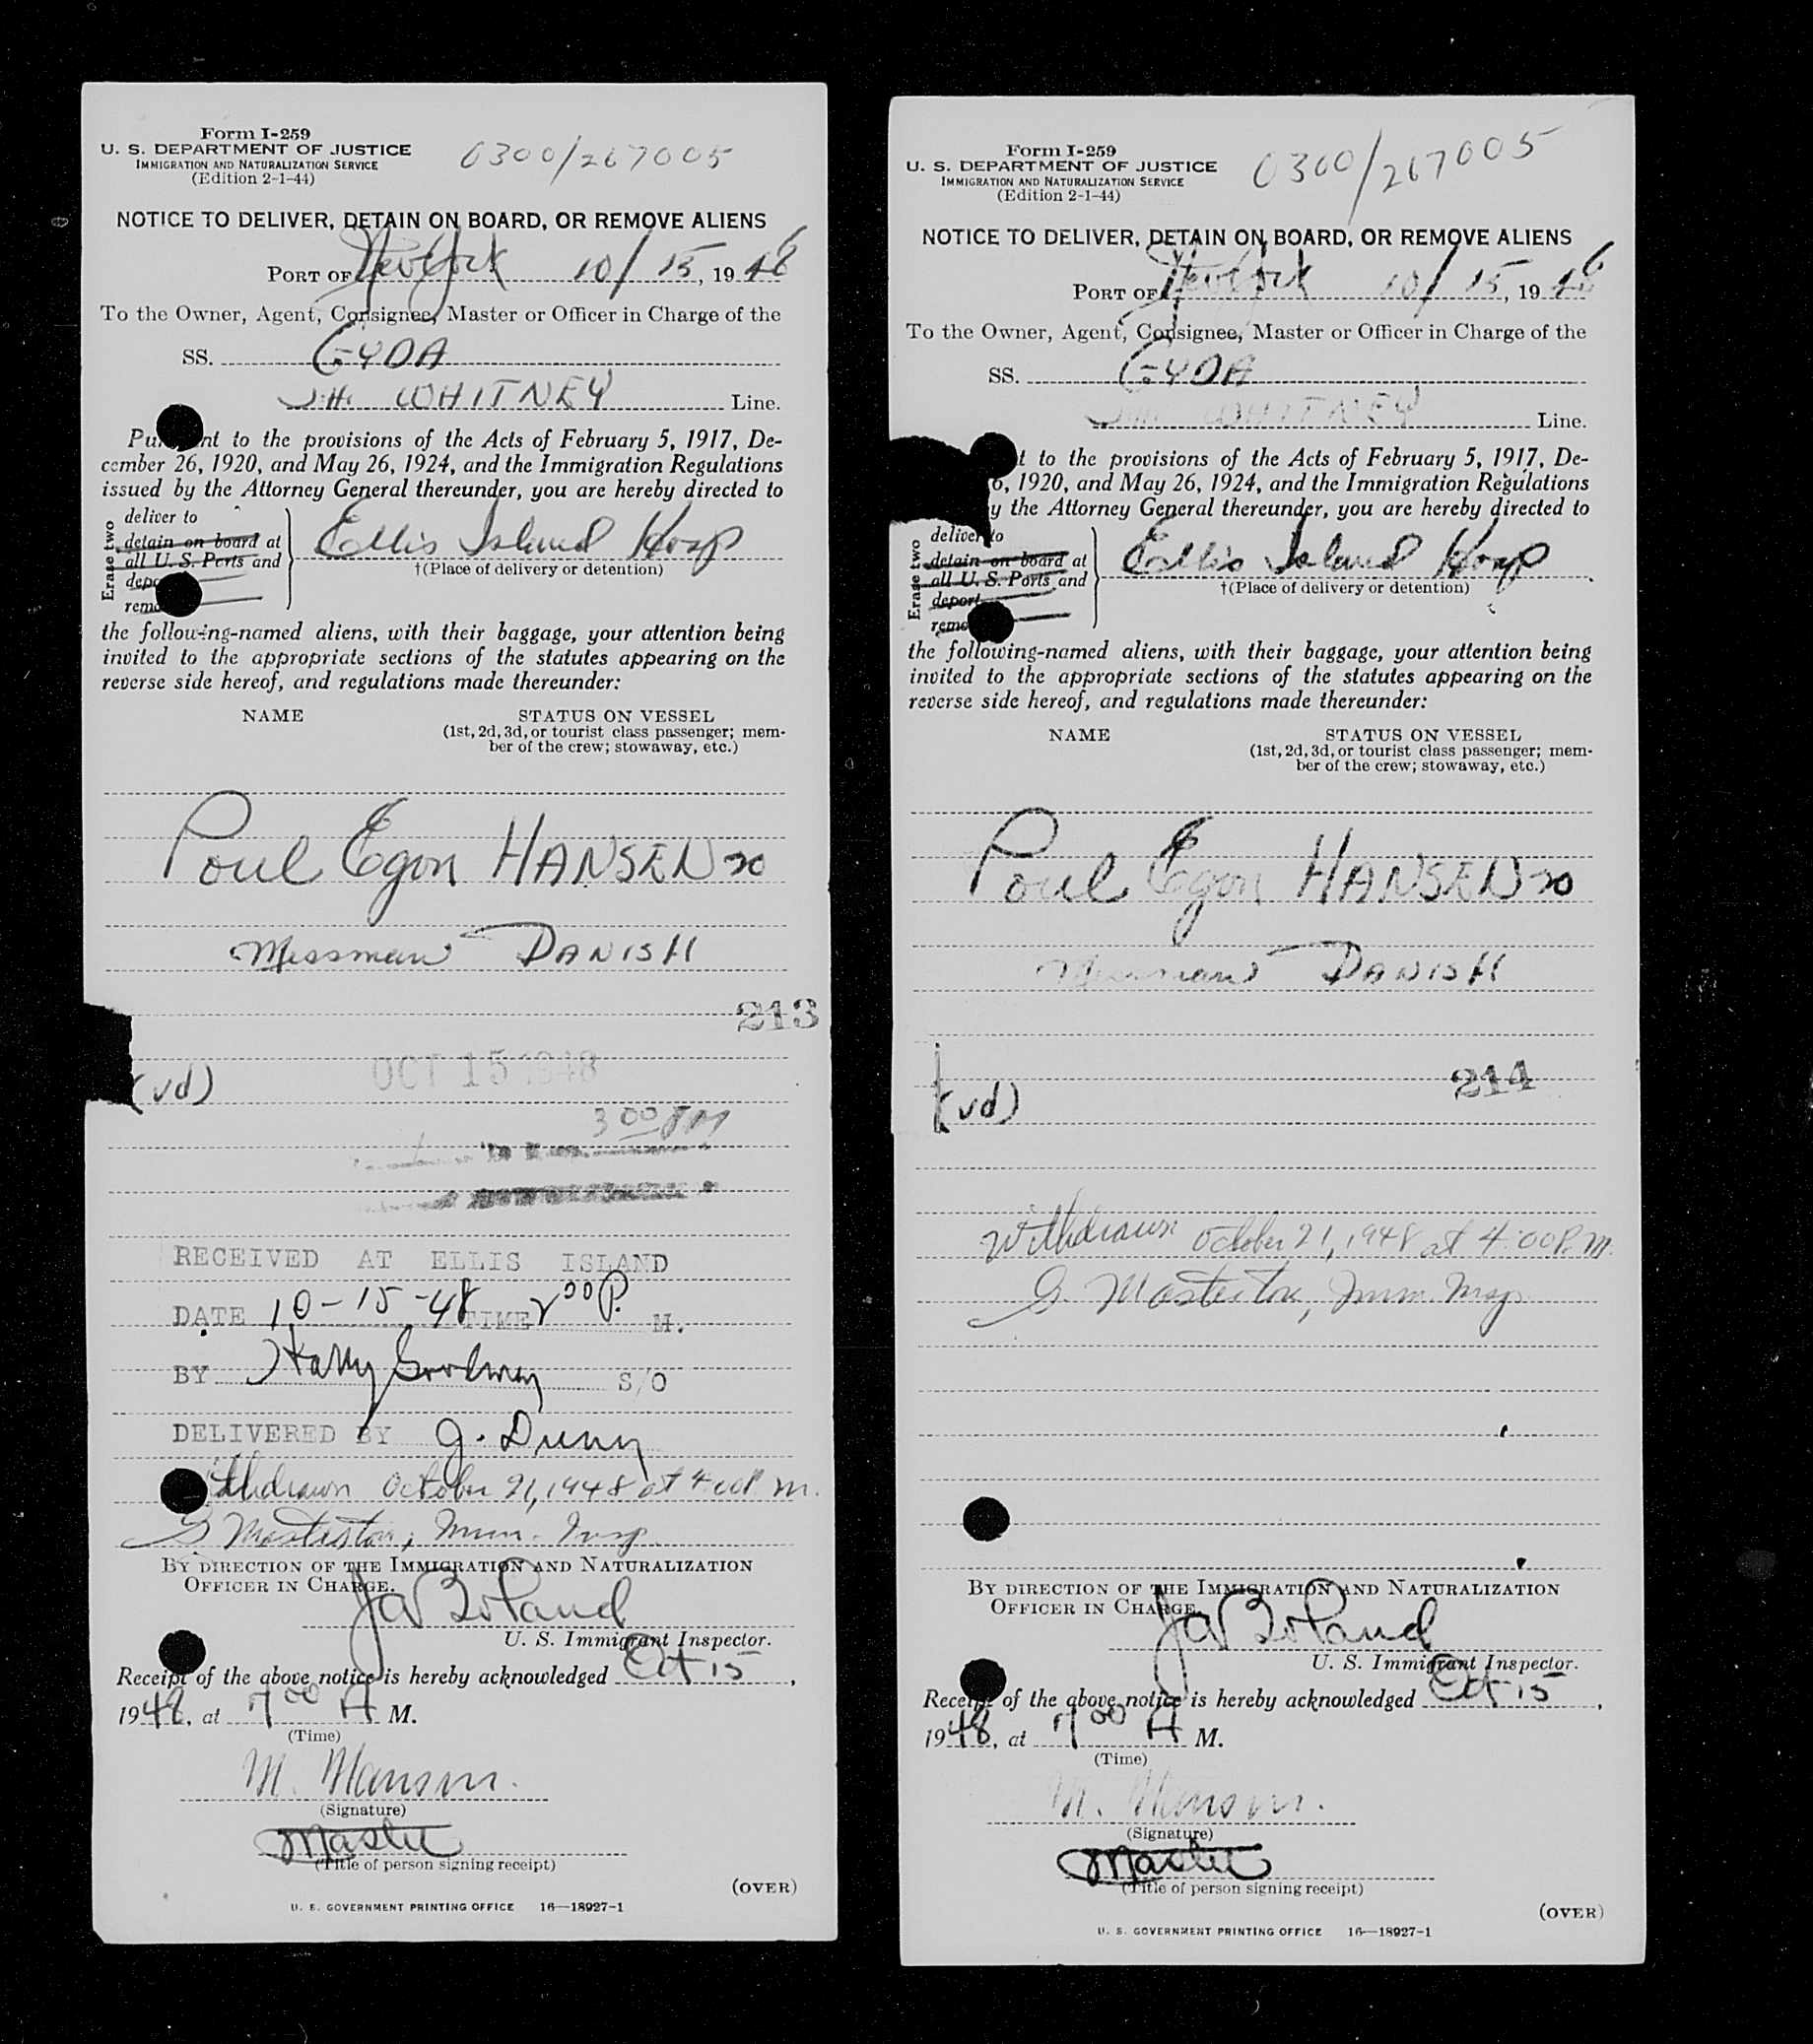 Form I-259
U. S. DEPARTMENT OF JUSTICE
IMMIGRATION AND NATURALIZATION SERVICE
(Edition 2-1-44)
0300/267005
NOTICE TO DELIVER, DETAIN ON BOARD, OR REMOVE ALIENS
PORT OF New York 10/15, 1948
To the Owner, Agent, Consignee, Master or Officer in Charge of the
SS. GYDA
J.H. WHITNEY Line.
Pu nt to the provisions of the Acts of February 5, 1917, De-
cember 26, 1920, and May 26, 1924, and the Immigration Regulations
issued by the Attorney General thereunder, you are hereby directed to
Erase two
deliver to
detain on board at
all U. S. Ports and
depo
remo
Ellis Island Hosp
†(Place of delivery or detention)
the following-named aliens, with their baggage, your attention being
invited to the appropriate sections of the statutes appearing on the
reverse side hereof, and regulations made thereunder:
NAME STATUS ON VESSEL
(1st, 2d, 3d, or tourist class passenger; mem-
ber of the crew; stowaway, etc.)
Poul Egon HANSEN 20
Messman DANISH
213
OCT 15 1948
(vd)
3 00 PM
RECEIVED AT ELLIS ISLAND
DATE 10-15-48 TIME 2 00 P. M.
BY Harry S/O
DELIVERED BY J. Dunn
Withdrawn October 21, 1948 at 4:00 P. M.
G Masterton, Imm. Insp.
BY DIRECTION OF THE IMMIGRATION AND NATURALIZATION
OFFICER IN CHARGE.
JA Boland
U. S. Immigrant Inspector.
Receipt of the above notice is hereby acknowledged Oct 15,
1948, at 7 00 A M.
(Time)
M. Manson.
(Signature)
Master
(Title of person signing receipt)
(OVER)
U. S. GOVERNMENT PRINTING OFFICE 16—18927-1
Form I-259
U. S. DEPARTMENT OF JUSTICE
IMMIGRATION AND NATURALIZATION SERVICE
(Edition 2-1-44)
0300/267005
NOTICE TO DELIVER, DETAIN ON BOARD, OR REMOVE ALIENS
PORT OF New York 10/15, 1948
To the Owner, Agent, Consignee, Master or Officer in Charge of the
SS. GYDA
J.H. WHITNEY Line.
t to the provisions of the Acts of February 5, 1917, De-
6, 1920, and May 26, 1924, and the Immigration Regulations
y the Attorney General thereunder, you are hereby directed to
Erase two
deliver to
detain on board at
all U. S. Ports and
deport
remo
Ellis Island Hosp
†(Place of delivery or detention)
the following-named aliens, with their baggage, your attention being
invited to the appropriate sections of the statutes appearing on the
reverse side hereof, and regulations made thereunder:
NAME STATUS ON VESSEL
(1st, 2d, 3d, or tourist class passenger; mem-
ber of the crew; stowaway, etc.)
Poul Egon HANSEN 20
Messman DANISH
214
(vd)
Withdrawn October 21, 1948 at 4:00 P. M.
G. Masterton, Imm. Insp.
BY DIRECTION OF THE IMMIGRATION AND NATURALIZATION
OFFICER IN CHARGE.
JA Boland
U. S. Immigrant Inspector.
Receipt of the above notice is hereby acknowledged Oct 15,
1948, at 7 00 A M.
(Time)
M. Manson.
(Signature)
Master
(Title of person signing receipt)
(OVER)
U. S. GOVERNMENT PRINTING OFFICE 16—18927-1